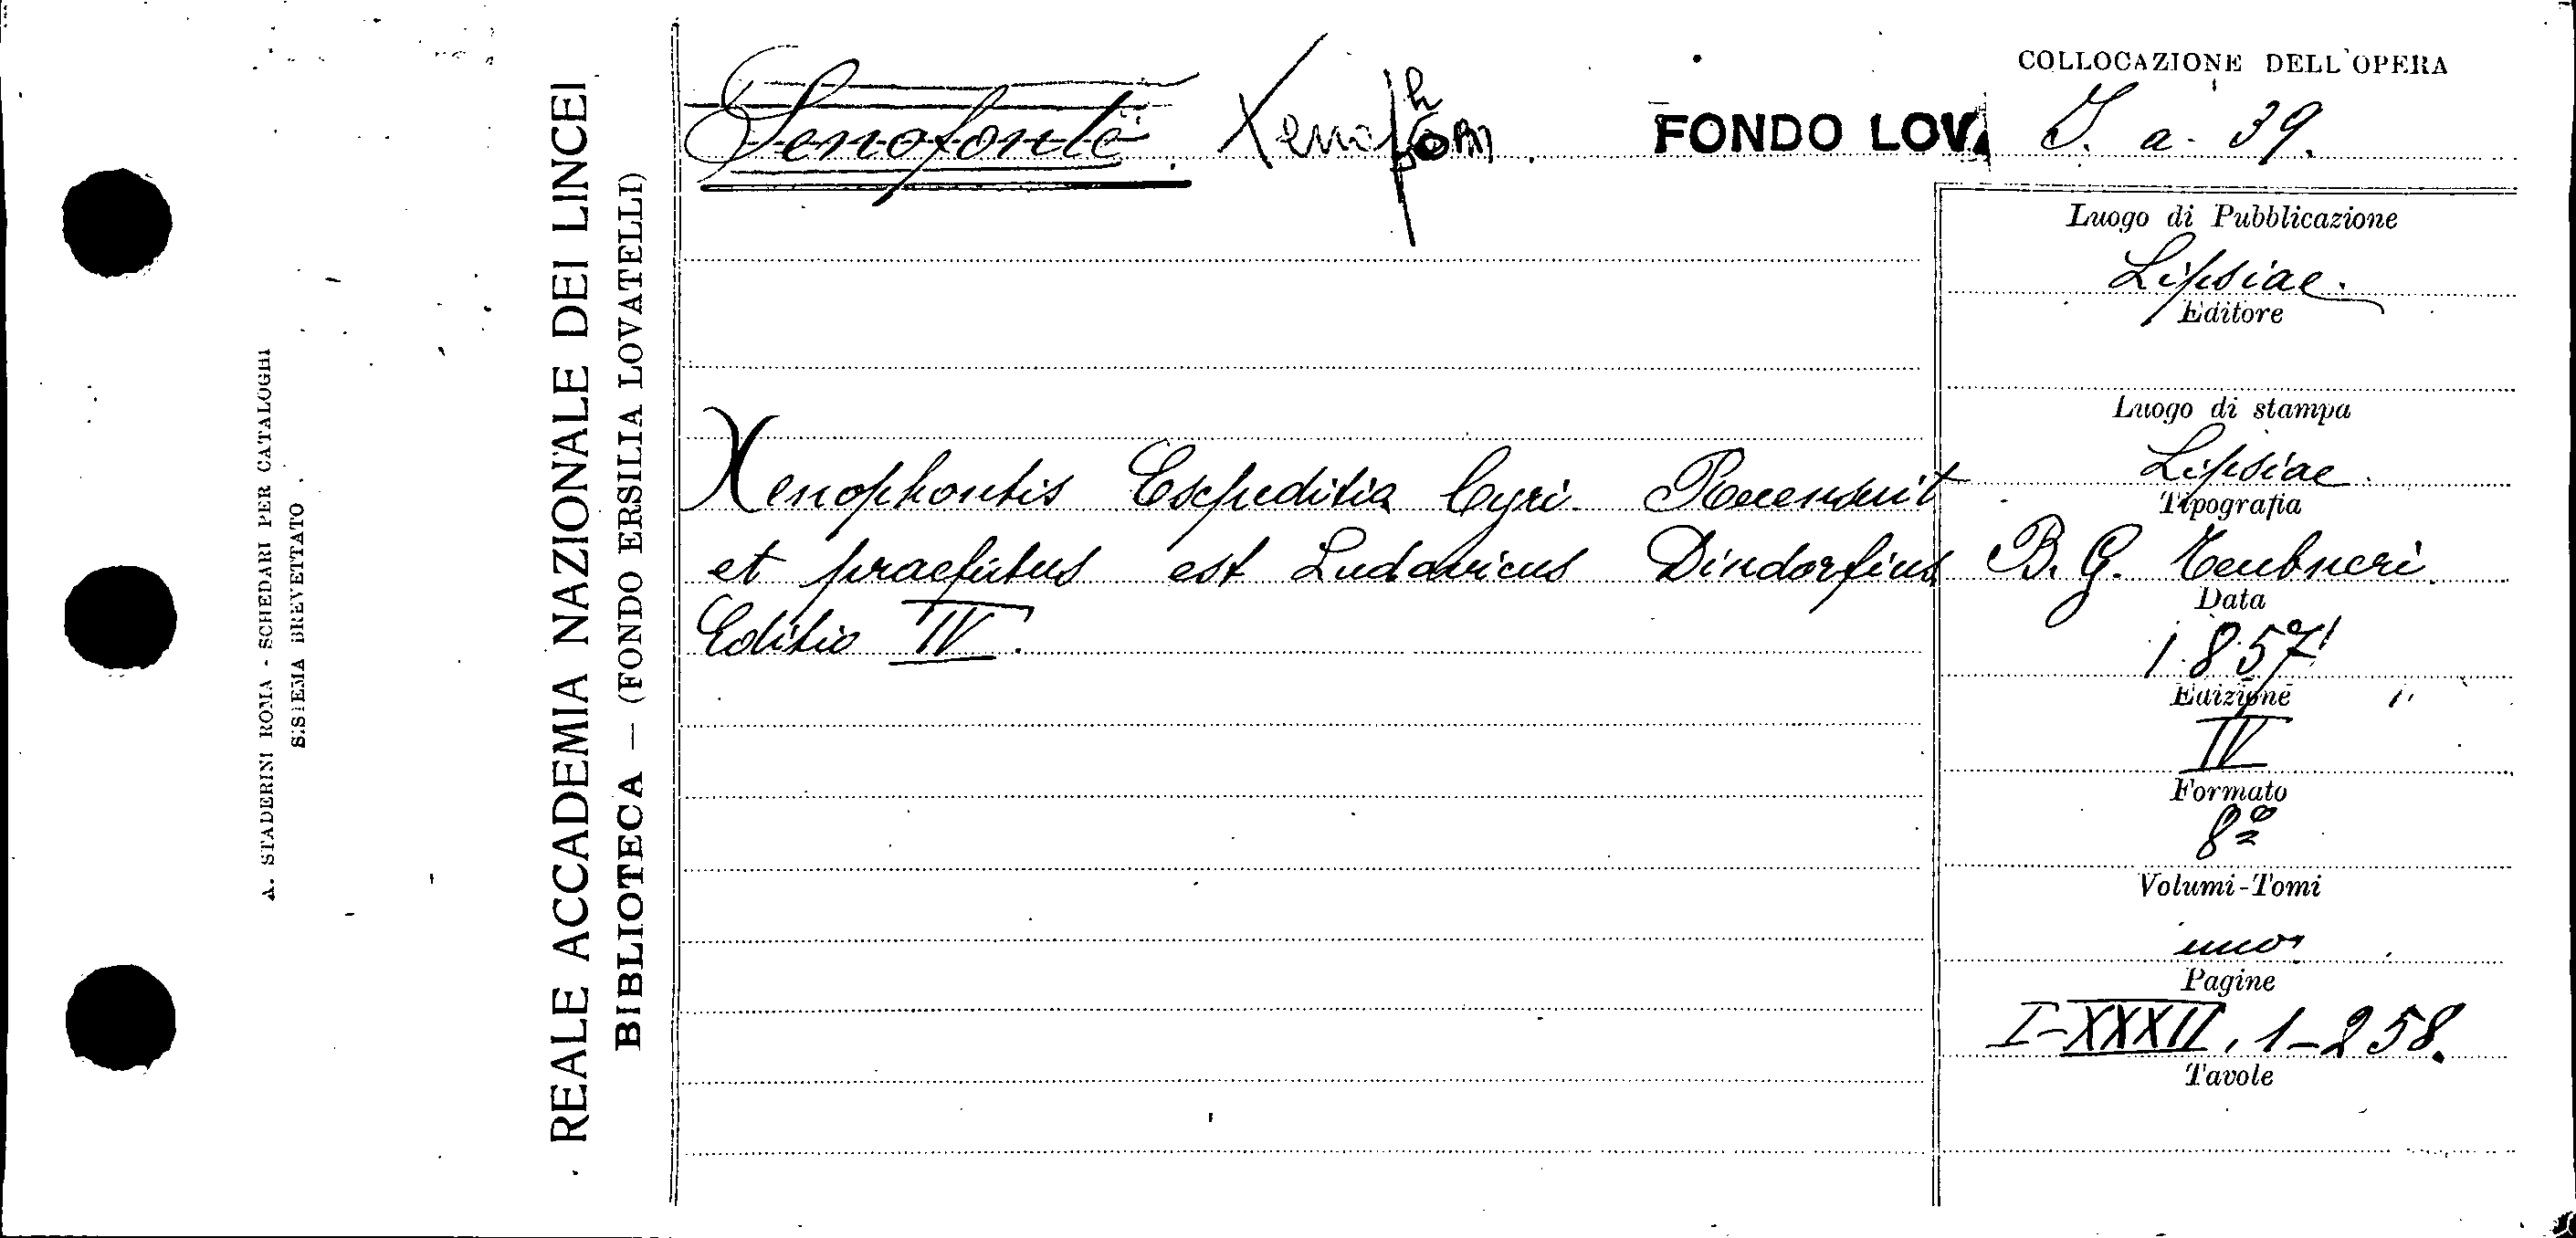 A. STADERINI ROMA - SCHEDARI PER CATALOGHI
SISTEMA BREVETTATO
REALE ACCADEMIA NAZIONALE DEI LINCEI
BIBLIOTECA — (FONDO ERSILIA LOVATELLI)
Senofonte. Xenophon.
FONDO LOVA
COLLOCAZIONE DELL'OPERA
I. a. 39.
Xenophontis Expeditio Cyri. Recensuit
et praefatus est Ludovicus Dindorfius
Editio IV.
Luogo di Pubblicazione
Lipsiae.
Editore
Luogo di stampa
Lipsiae.
Tipografia
B. G. Teubneri.
Data
1857
Edizione
IV
Formato
8º
Volumi-Tomi
uno
Pagine
I-XXXII, 1-258.
Tavole